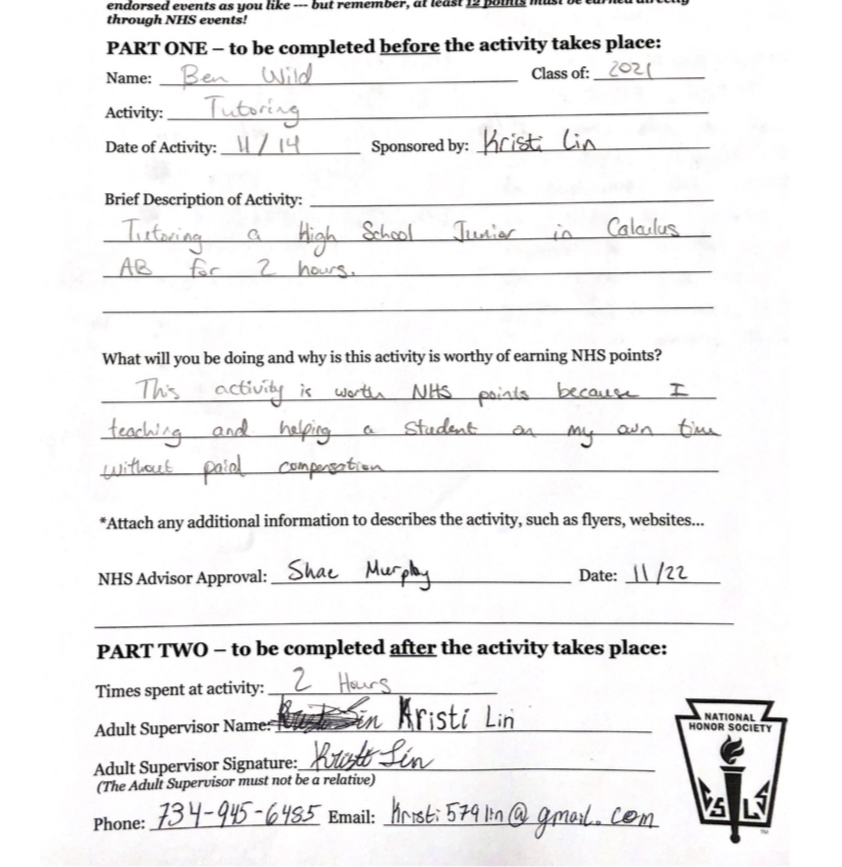 endorsed events as you like --- but remember, at least 12 points must be earned directly
through NHS events!
PART ONE – to be completed before the activity takes place:
Name: Ben Wild Class of: 2021
Activity: Tutoring
Date of Activity: 11/14 Sponsored by: Kristi Lin
Brief Description of Activity:
Tutoring a High School Junior in Calculus
AB for 2 hours.
What will you be doing and why is this activity is worthy of earning NHS points?
This activity is worth NHS points because I
teaching and helping a student on my own time
without paid compensation
*Attach any additional information to describes the activity, such as flyers, websites...
NHS Advisor Approval: Shae Murphy Date: 11/22
PART TWO – to be completed after the activity takes place:
Times spent at activity: 2 Hours
Adult Supervisor Name: Kristi Lin
Adult Supervisor Signature: Kristi Lin
(The Adult Supervisor must not be a relative)
Phone: 734-945-6485 Email: kristi579lin@gmail.com
NATIONAL
HONOR SOCIETY
C S L S